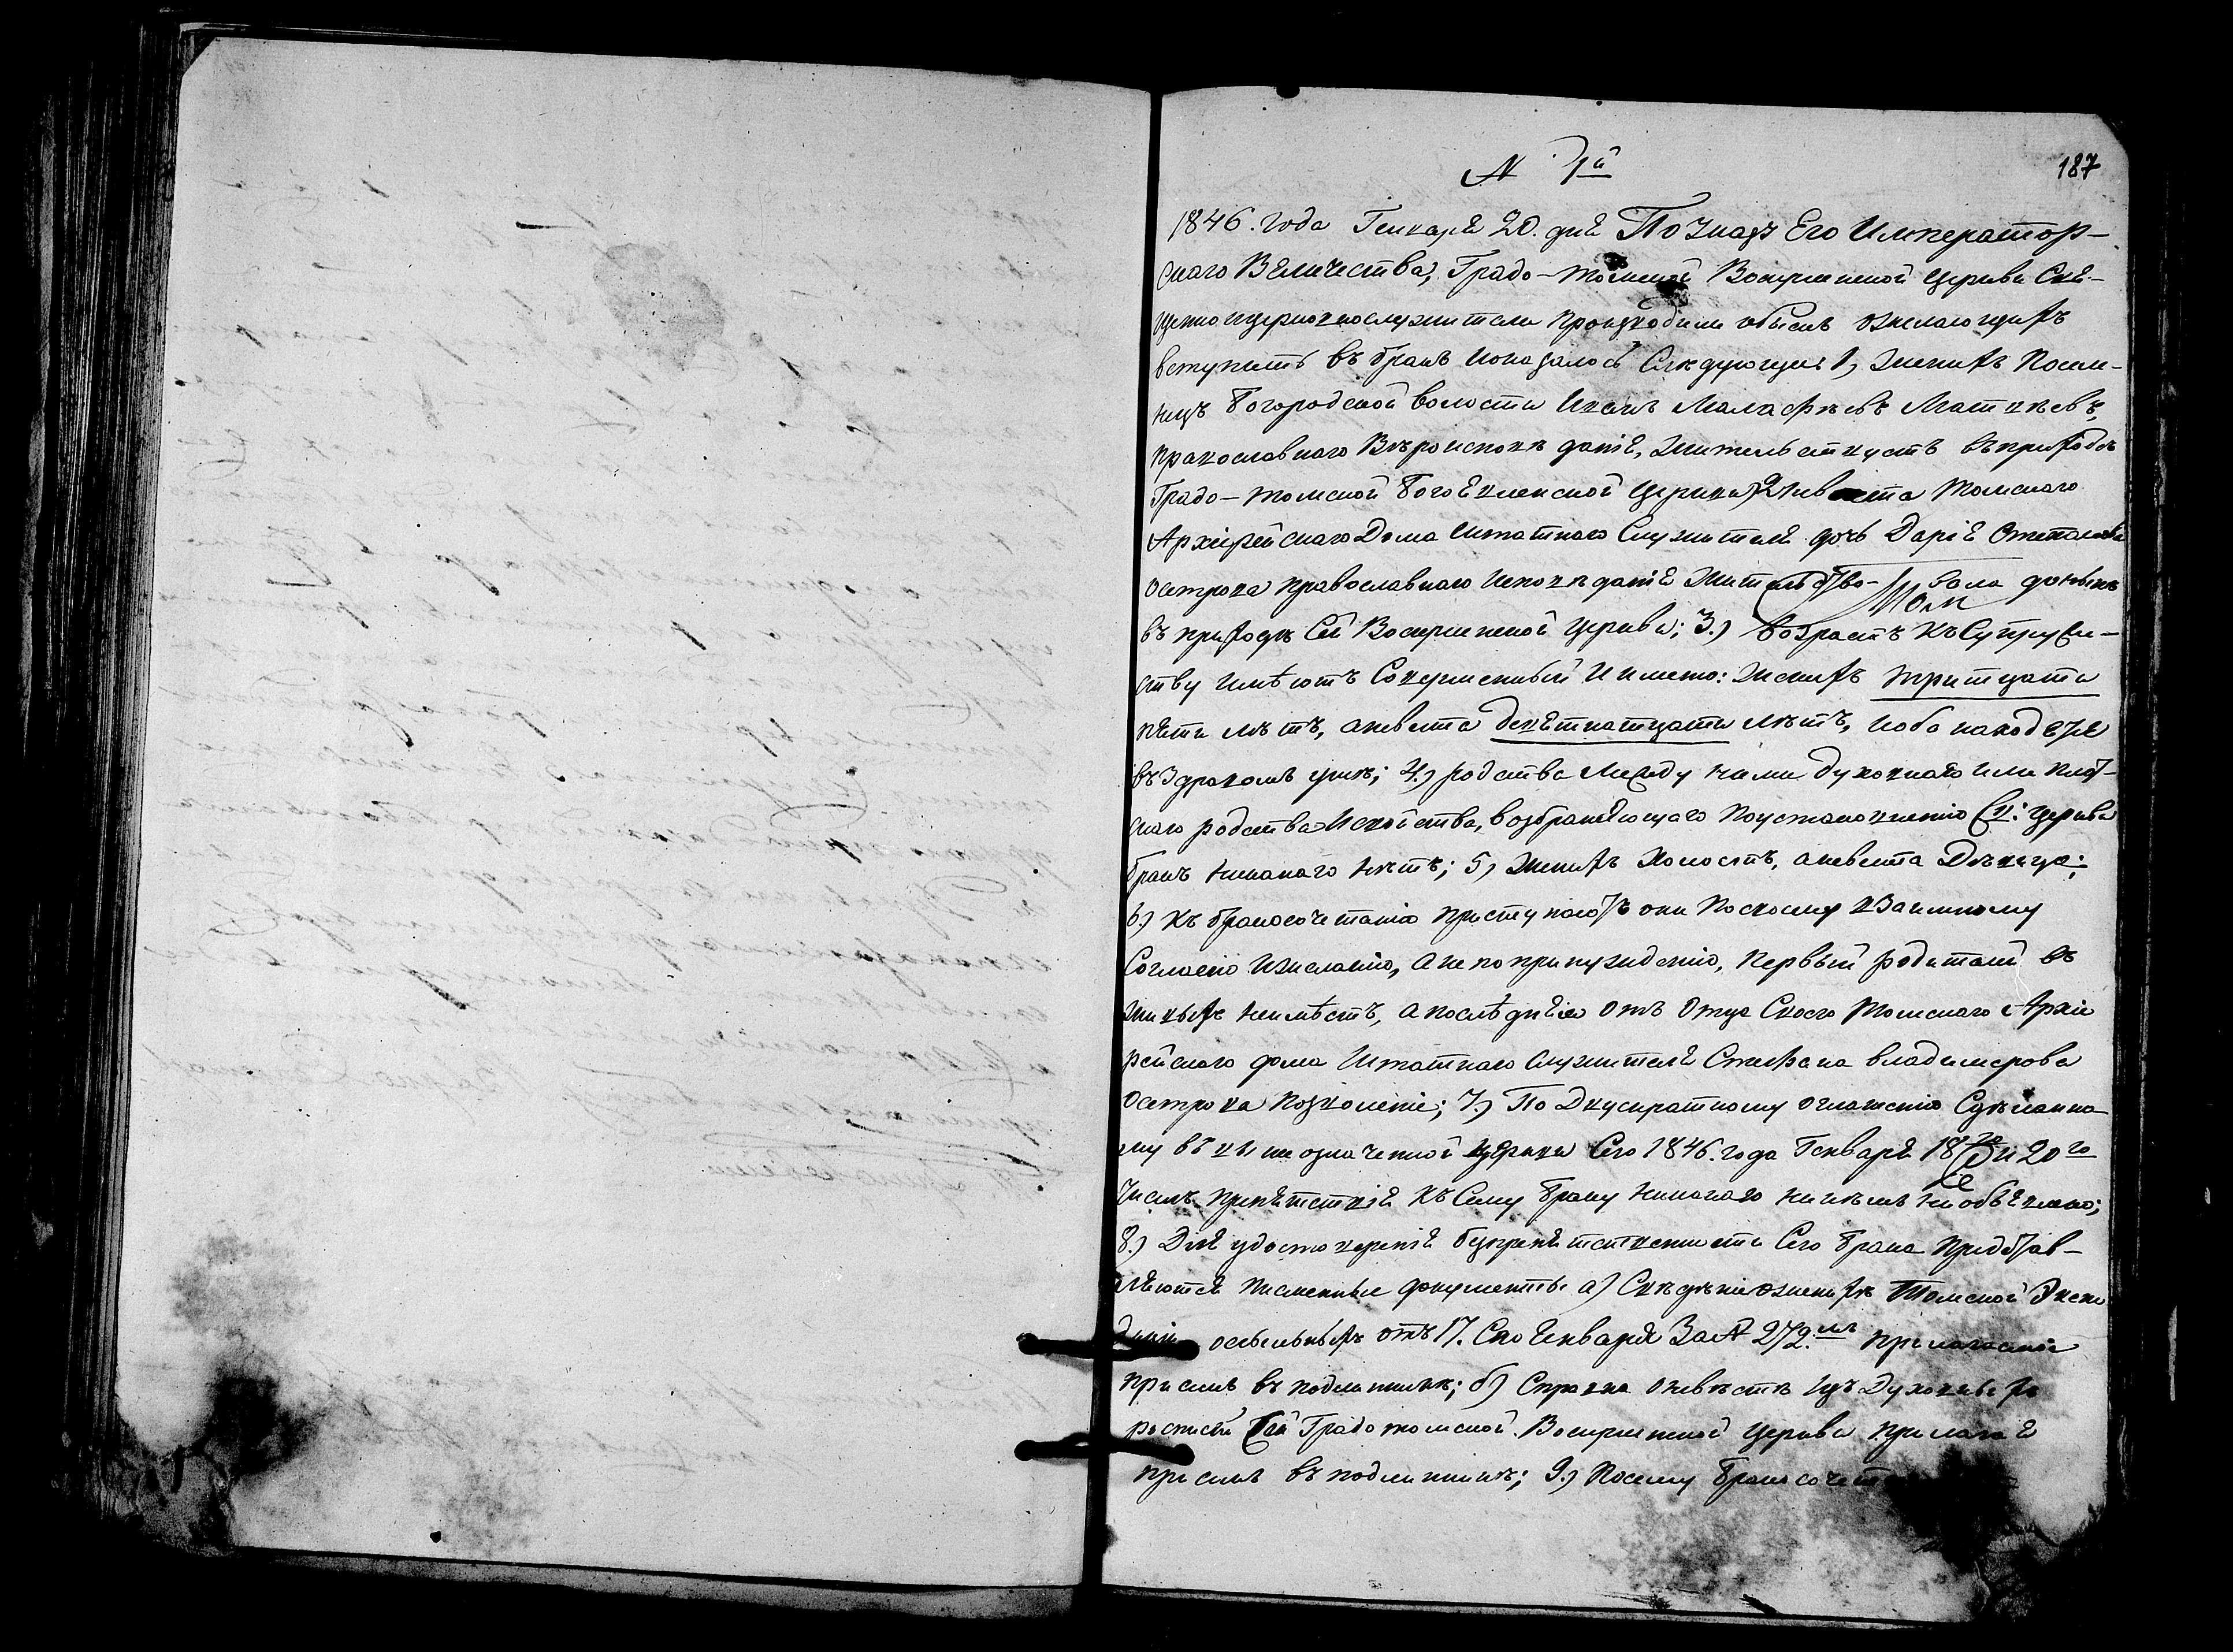 187
№ 7й
1846. года Генваря 20. дня По Указу Его Император-
скаго Величества, Градо-Томской Воскресенской церкви Свя-
щенно и церковнослужители произходили обыскъ о желающихъ
вступить въ бракъ и оказалось следующее 1, Женихъ Посел-
нцъ Богородской волости Иванъ Малафѣевъ Матвѣевъ,
православнаго Вѣроисповѣданія, жительствуетъ въ приходѣ
Градо-Томской Богоявленской церкви; 2 невѣста Томскаго
Архіерейскаго Дома штатнаго Служителя дочь Дарія Степанова
Острова православнаго исповѣданія Жительство-вала донынѣ
въ приходѣ Сей Воскресенской церкви; 3.) возрастъ къ Супруже-
ству имѣютъ Совершенный и имено: женихъ тритцати
пяти лѣтъ, а невѣста девятнатцати лѣтъ, и оба находятся
въ здравомъ умѣ; 4.) родства между ними духовнаго или плот-
скаго родства и свойства, возбраняющаго по установленію Св: церкви
бракъ никакаго нѣтъ; 5, Женихъ Холостъ, а невѣста Дѣвица;
6.) къ бракосочетанію приступаютъ они по своему взаимному
Согласію и желанію, а не по принужденію, первый родителей въ
живыхъ неимѣетъ, а послѣдняя отъ Отца Своего Томскаго Архіе
рейскаго дома Штатнаго служителя Стефана Владимерова
Острова позволеніе; 7.) По Двукратному оглашенію Сдѣланно-
му въ вышеозначенной церкви Сего 1846. года Генваря 18го и 20го
Числъ препятствія къ Сему браку никакаго никѣмъ не объявлено;
8.) Для удостоверенія безпрепятственности Сего брака представ-
ляются писменные документы а) Свѣдѣніе о женихѣ Томской Экспе
диціи о ссыльныхъ отъ 17. Сего Генваря За № 272.мъ прилагаемое
при семъ въ подлинникѣ; б) Справка о невѣстѣ изъ Духовныхъ
росписей Сей Градотомской Воскресенской церкви прилагая
при семъ въ подлинникѣ; 9.) Посему бракосочет